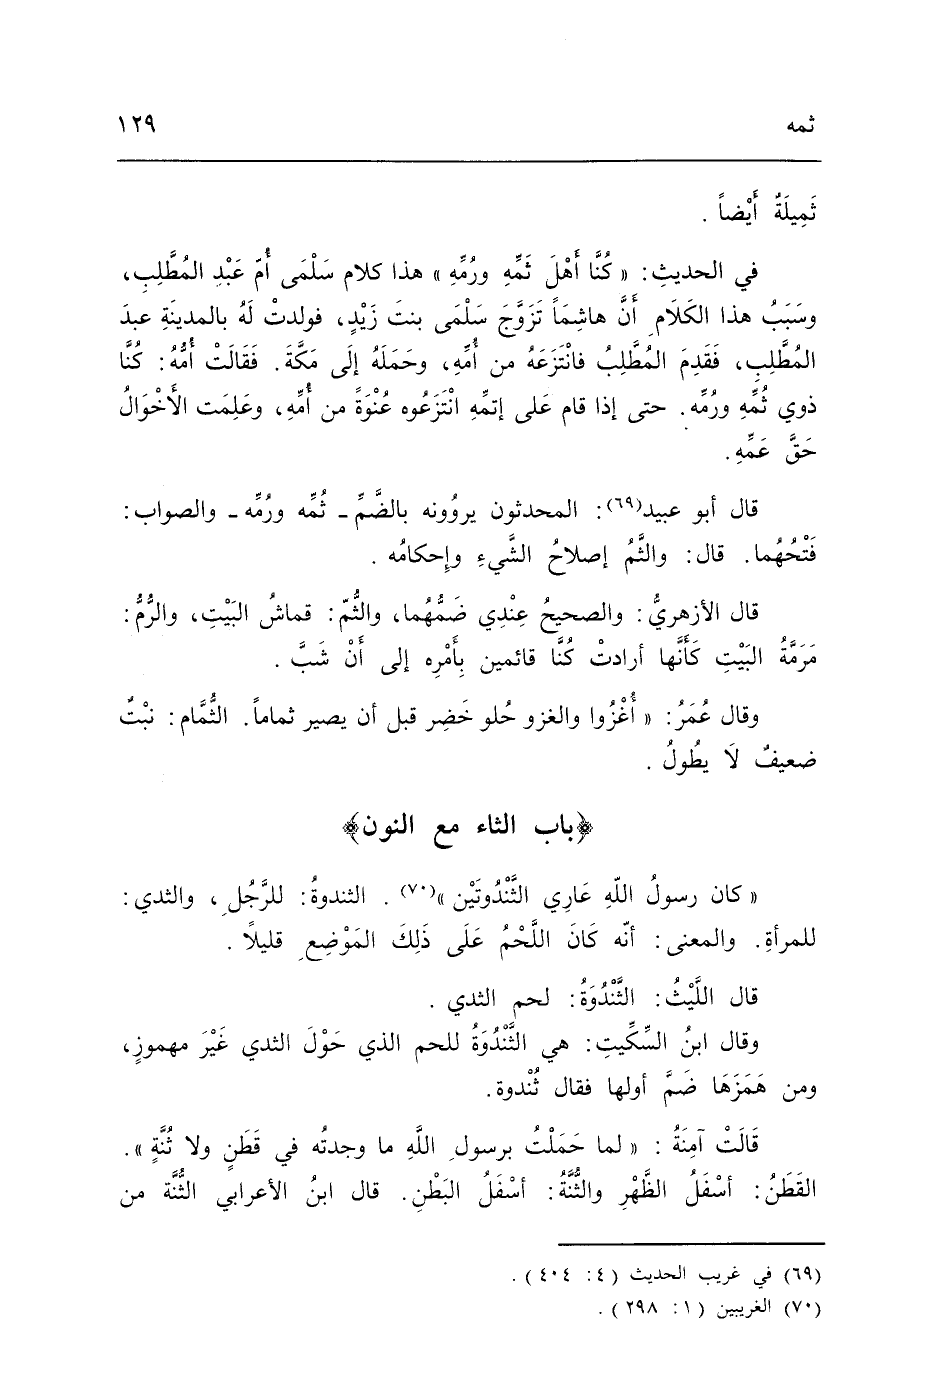 ثمه ١٢٩
ثَمِيلَةٌ أَيْضاً .
في الحديثِ: « كُنَّا أَهْلَ ثَمِّهِ ورُمِّهِ » هذا كلام سَلْمَى أُمّ عَبْدِ المُطَّلِبِ،
وسَبَبُ هذا الكَلَامِ أَنَّ هاشِمَاً تَزَوَّجَ سَلْمَى بنتَ زَيْدٍ، فولدتْ لَهُ بالمدينَةِ عبدَ
المُطَّلِبِ، فَقَدِمَ المُطَّلِبُ فانْتَزَعَهُ من أُمِّهِ، وحَمَلَهُ إِلَى مَكَّةَ. فَقَالَتْ أُمُّهُ: كُنَّا
ذوي ثُمِّهِ ورُمِّه. حتى إذا قام عَلى إتمِّهِ انْتَزَعُوه عُنْوَةً من أُمِّهِ، وعَلِمَت الأَخْوَالُ
حَقَّ عَمِّهِ.
قال أبو عبيد(٦٩): المحدثون يروُونه بالضَّمِّ ـ ثُمِّه ورُمِّه ـ والصواب:
فَتْحُهُما. قال: والثَّمُ إصلاحُ الشَّيءِ وإِحكامُه .
قال الأزهريُّ: والصحيحُ عِنْدِي ضَمُّهُما، والثُّمّ: قماشُ البَيْتِ، والرُّمُّ:
مَرَمَّةُ البَيْتِ كَأَنَّها أرادتْ كُنَّا قائمين بِأَمْرِه إلى أَنْ شَبَّ .
وقال عُمَرُ: « أُغْزُوا والغزو حُلو خَضِر قبل أن يصير ثماماً. الثُّمَّام: نبْتٌ
ضعيفٌ لَا يطُولُ .
﴿باب الثاء مع النون﴾
« كان رسولُ اللّهِ عَارِي الثَّنْدُوتَيْن »(٧٠) . الثندوةُ: للرَّجُلِ، والثدي:
للمرأةِ. والمعنى: أنّه كَانَ اللَّحْمُ عَلَى ذَلِكَ المَوْضِعِ قليلًا .
قال اللَّيْثُ: الثَّنْدُوَةُ: لحم الثدي .
وقال ابنُ السِّكِّيتِ: هي الثَّنْدُوَةُ للحم الذي حَوْلَ الثدي غَيْرَ مهموزٍ،
ومن هَمَزَهَا ضَمَّ أولها فقال ثُنْدوة.
قَالَتْ آمِنَةُ : « لما حَمَلْتُ برسولِ اللَّهِ ما وجدتُه في قَطَنٍ ولا ثُنَّةٍ ».
القَطَنُ: أسْفَلُ الظَّهْرِ والثُّنَّةُ: أسْفَلُ البَطْنِ. قال ابنُ الأعرابي الثُّنَّة من
(٦٩) في غريب الحديث (٤: ٤٠٤) .
(٧٠) الغريبين (١: ٢٩٨) .